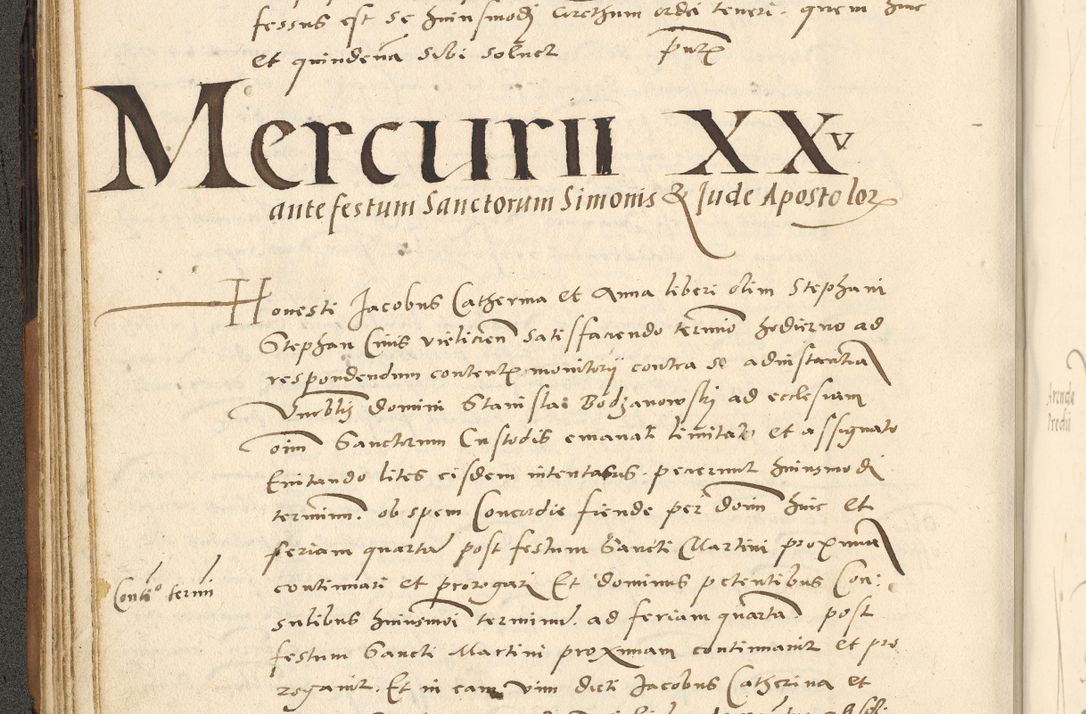 fessus est se huiusmodi Arestum orde teneri. quem huic
et quindena sibi soluet
Mercurii XXV
ante festum Sanctorum Simonis & Jude Apostolor
Honesti Jacobus Catherina et Anna liberi olim Stephani
Stephan Civis vielicien satisfaciendo termio hodierno ad
respondendum content monitorii contra se ad instantia
Vnrblis domini Stanislai Bodzanowskj ad ecclesiam
oim Sanctorum Custodis emanat limitat et assignato
Euitando lites eisdem intentatus. pecierunt huiusmodi
terminum. ob spem Concordie fiende per dom huic et
feriam quarta post festum Sancti Martini proxima
continuari et prorogari Et dominus petentibus Con:
Conti° termi
sulibus huiusmoi terminu. ad feriam quarta. post
festum Sancti Martini proximam continuauit et pro
rogauit. Et in eam vim dicti Jacobus Catherina et
Arenda
Predii